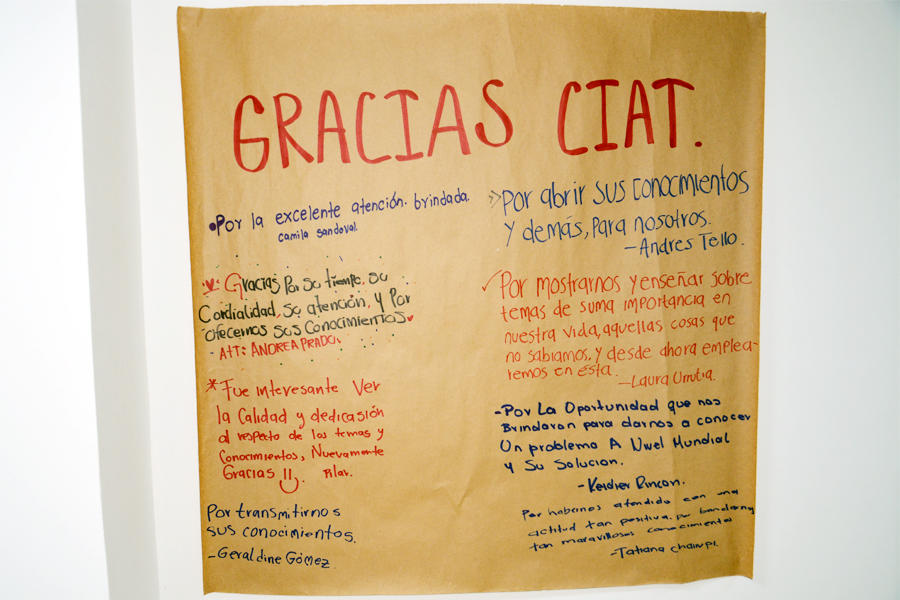 GRACIAS CIAT.
•Por la excelente atención. brindada.
camila sandoval.
Gracias Por su tiempo, su
Cordialidad, su atención, y Por
ofrecernos sus Conocimientos
- ATT: ANDREA PRADO.
*Fue interesante Ver
la Calidad y dedicasión
al respecto de los temas y
Conocimientos, Nuevamente
Gracias !! Pilar.
Por transmitirnos
sus conocimientos.
-Geraldine Gómez.
Por abrir sus conocimientos
y demás, para nosotros.
-Andres Tello.
Por mostrarnos y enseñar sobre
temas de suma importancia en
nuestra vida, aquellas cosas que
no sabiamos, y desde ahora emplea-
remos en ésta.
-Laura Urrutia.
-Por La Oportunidad que nos
Brindaron para darnos a conocer
Un problema A Nivel Mundial
y Su Solucion.
-Keidier Rincon.
Por habernos atendido con una
actitud tan positiva. por
tan maravillosos conocimientos
-Tatiana